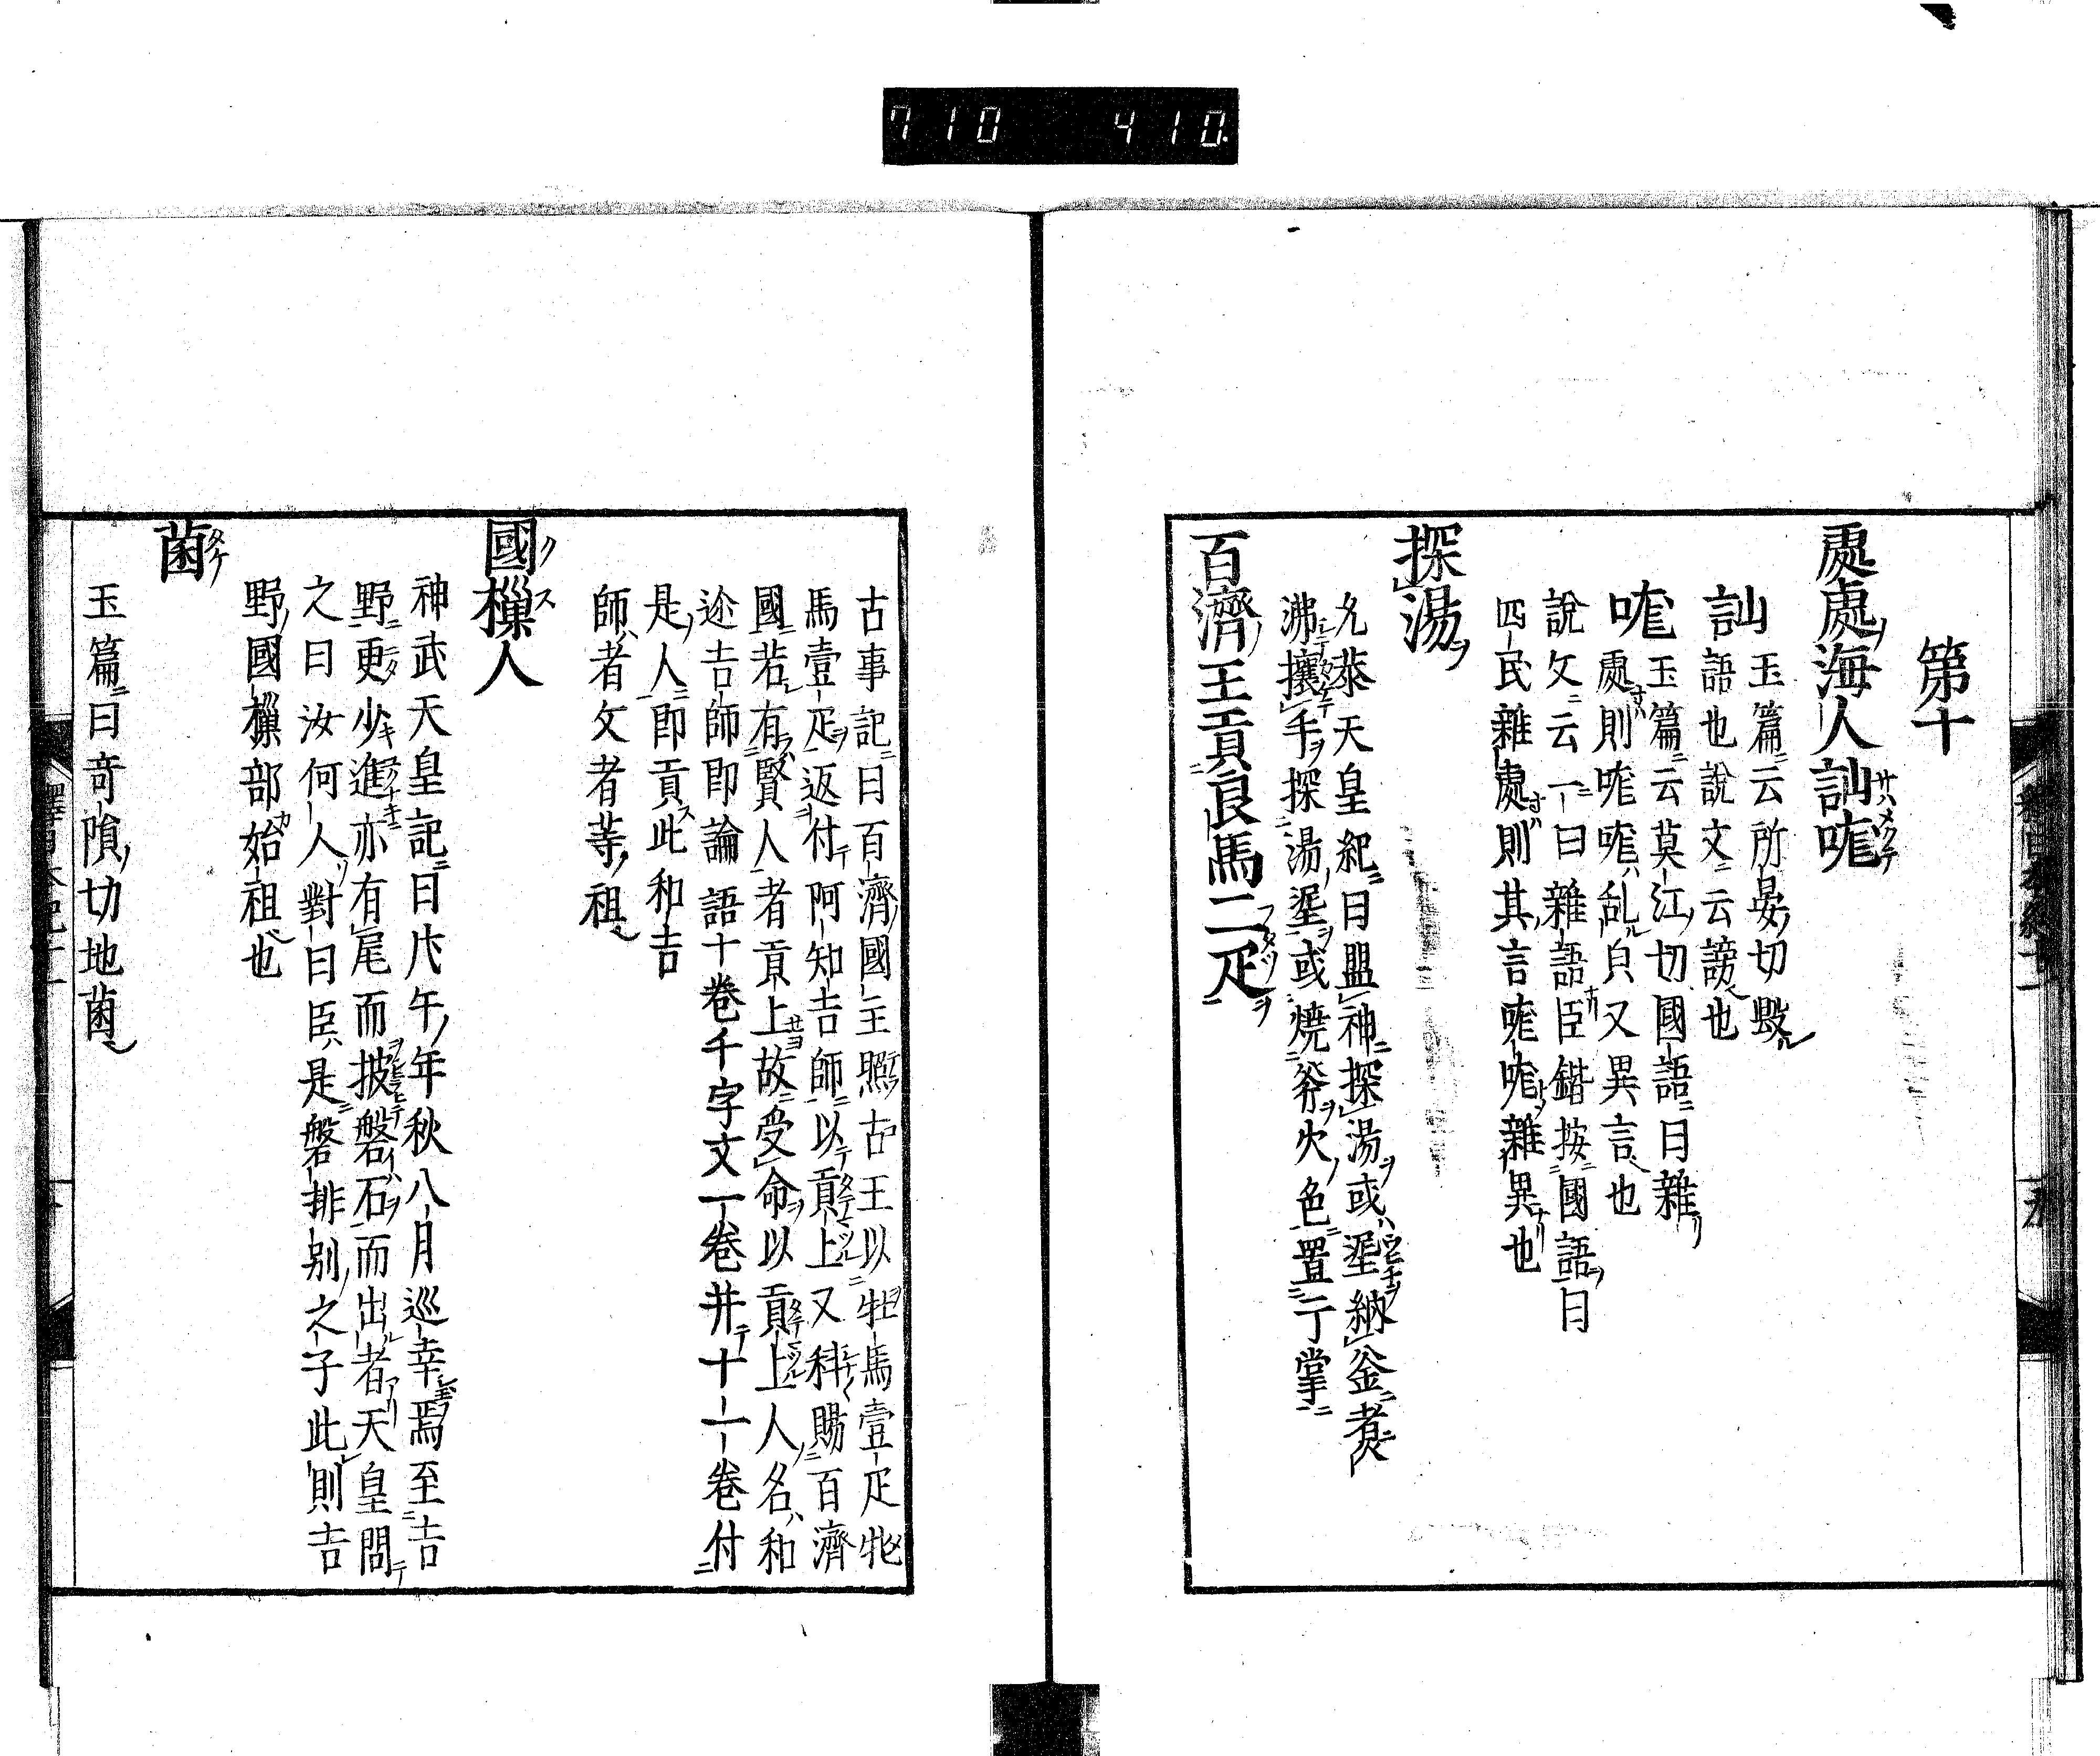 710 410
第十
處處海人訕哤
訕玉篇云所晏切毀
語也說文云謗也
哤玉篇云莫江切國語曰雜
處則哤哤乱皃又異言也
說文云一曰雜語臣鍇按國語曰
四民雜處則其言哤哤雜異也
探湯
允恭天皇紀曰盟神探湯或埿納釜煮
沸攘手探湯埿或燒斧火色置于掌
百濟王貢良馬二疋
古事記曰百濟國主照古王以牡馬壹疋牝
馬壹疋返付阿知吉師以貢上又科賜百濟
國若有賢人者貢上故受命以貢上人名和
迩吉師即論語十卷千字文一卷并十一卷付
是人即貢此和吉
師者文者䓁祖
國樔人
神武天皇記曰戊午年秋八月巡幸焉至吉
野更少進亦有尾而披磐石而出者天皇問
之曰汝何人對曰臣是磐排别之子此則吉
野國樔部始祖也
菌
玉篇曰奇隕切地菌
釋日本紀十一